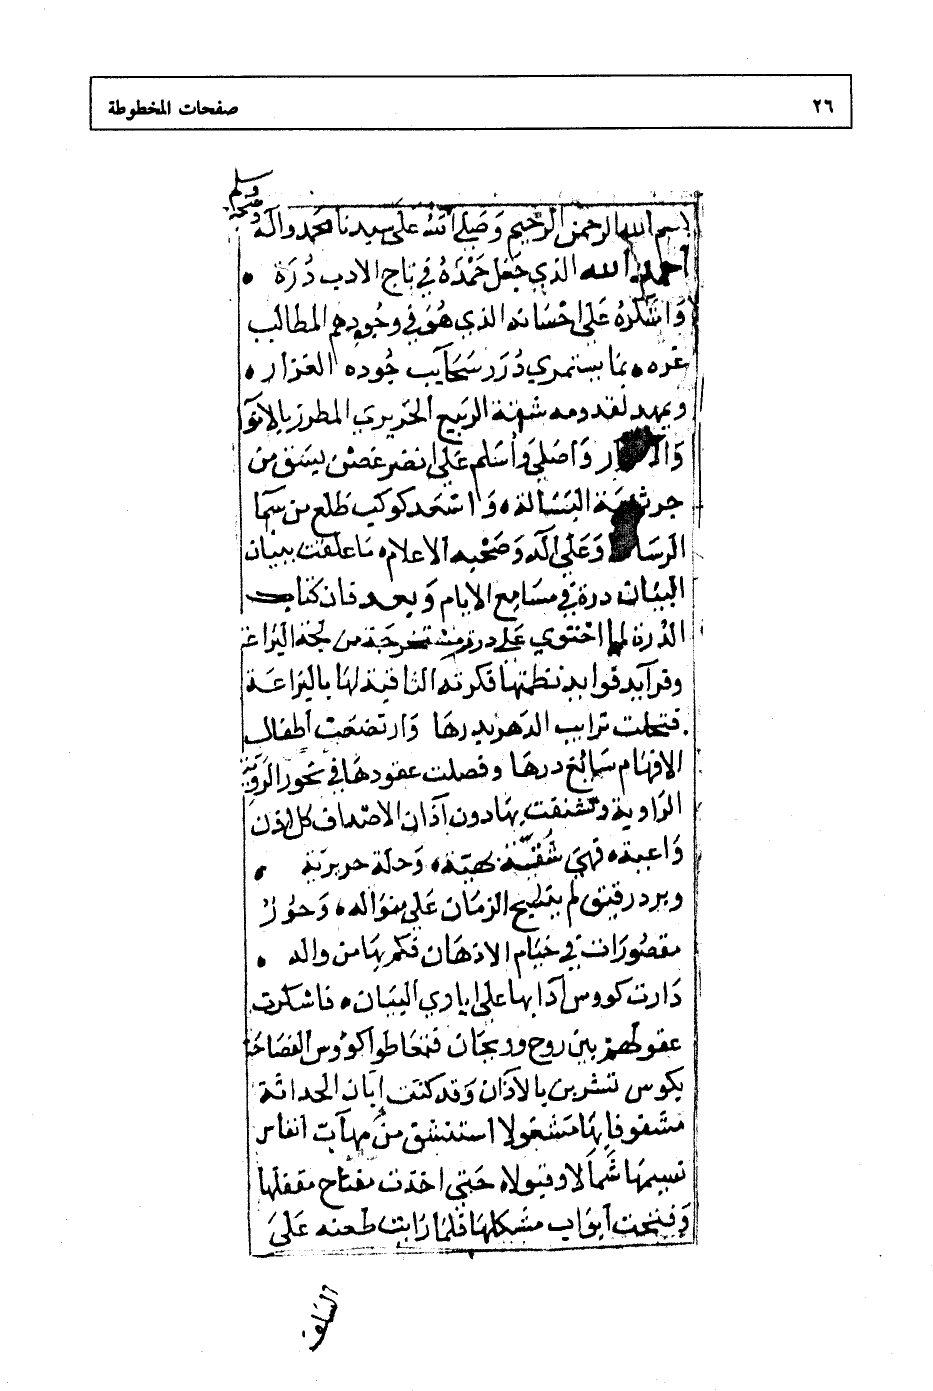 ٢٦
صفحات المخطوطة
وسلم
وصحبه
بسم الله الرحمن الرحيم وصلى الله على سيدنا محمد وآله
أحمد الله الذي جعل حمده في تاج الادب درة
واشكره على احسانه الذي هو في وجودهم المطالب
غره بما يستمري درر سحايب جوده الغزار
ويمهد لقدومه شقة الربيع الحريري المطرز بالانوا
وأصلي وأسلم على انضر غصن بسق من
جرثومة البسالة واسعد كوكب طلع من سما
وعلى آله وصحبه الاعلام ما علقت ببنان
البيان درة في مسامع الايام وبعد فان كتاب
الدرة لما احتوى على درر مستخرجة من لجة اليراعة
وفرآيد فوايد نظمتها فكرته الثاقبة لها بالبراعة
فتحلت ترايب الدهر بدرها وارتضعت أطفال
الافهام سائغ درها وفصلت عقودها في نحور الروية
الراوية وتشنفت بها دون آذان الاصداف كل اذن
واعية فهي شقة بهية وحلة حريرية
وبرد رقيق لم ينسج الزمان على منواله وحور
مقصورات في خيام الاذهان فكم بها من واله
دارت كووس آدابها على ايادي البيان فاسكرت
عقولهم بين روح وريحان فتعاطوا كؤوس الفصاحة
بكوس تشرب بالآذان وقد كنت إبان الحداثة
مشغوفا بها مشغولا استنشق من مهآب انفاس
نسيمها شمالا وقبولا حتى اخذت مفتاح مقفلها
وفتحت أبواب مشكلها فلما رايت طعنه على
السلف